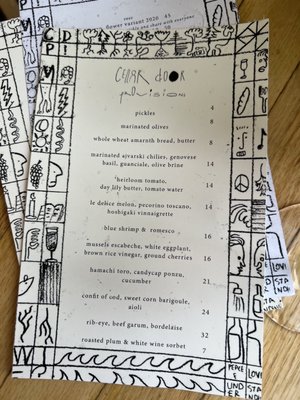 your
flower variant 2020 43
and share with everyone
CELLAR DOOR
PROVISIONS
4
pickles
8
marinated olives
whole wheat amarnth bread, butter 8
marinated ajvarski chilies, genovese
basil, guanciale, olive brine 14
heirloom tomato,
day lily butter, tomato water 14
le delice melon, pecorino toscano,
hoshigaki vinnaigrette 14
blue shrimp & romesco 16
mussels escabeche, white eggplant,
brown rice vinegar, ground cherries 16
hamachi toro, candycap ponzu,
cucumber 21
confit of cod, sweet corn barigoule,
aioli 24
rib-eye, beef garum, bordelaise 32
roasted plum & white wine sorbet 7
PEACE LOVE
UNDER STAND